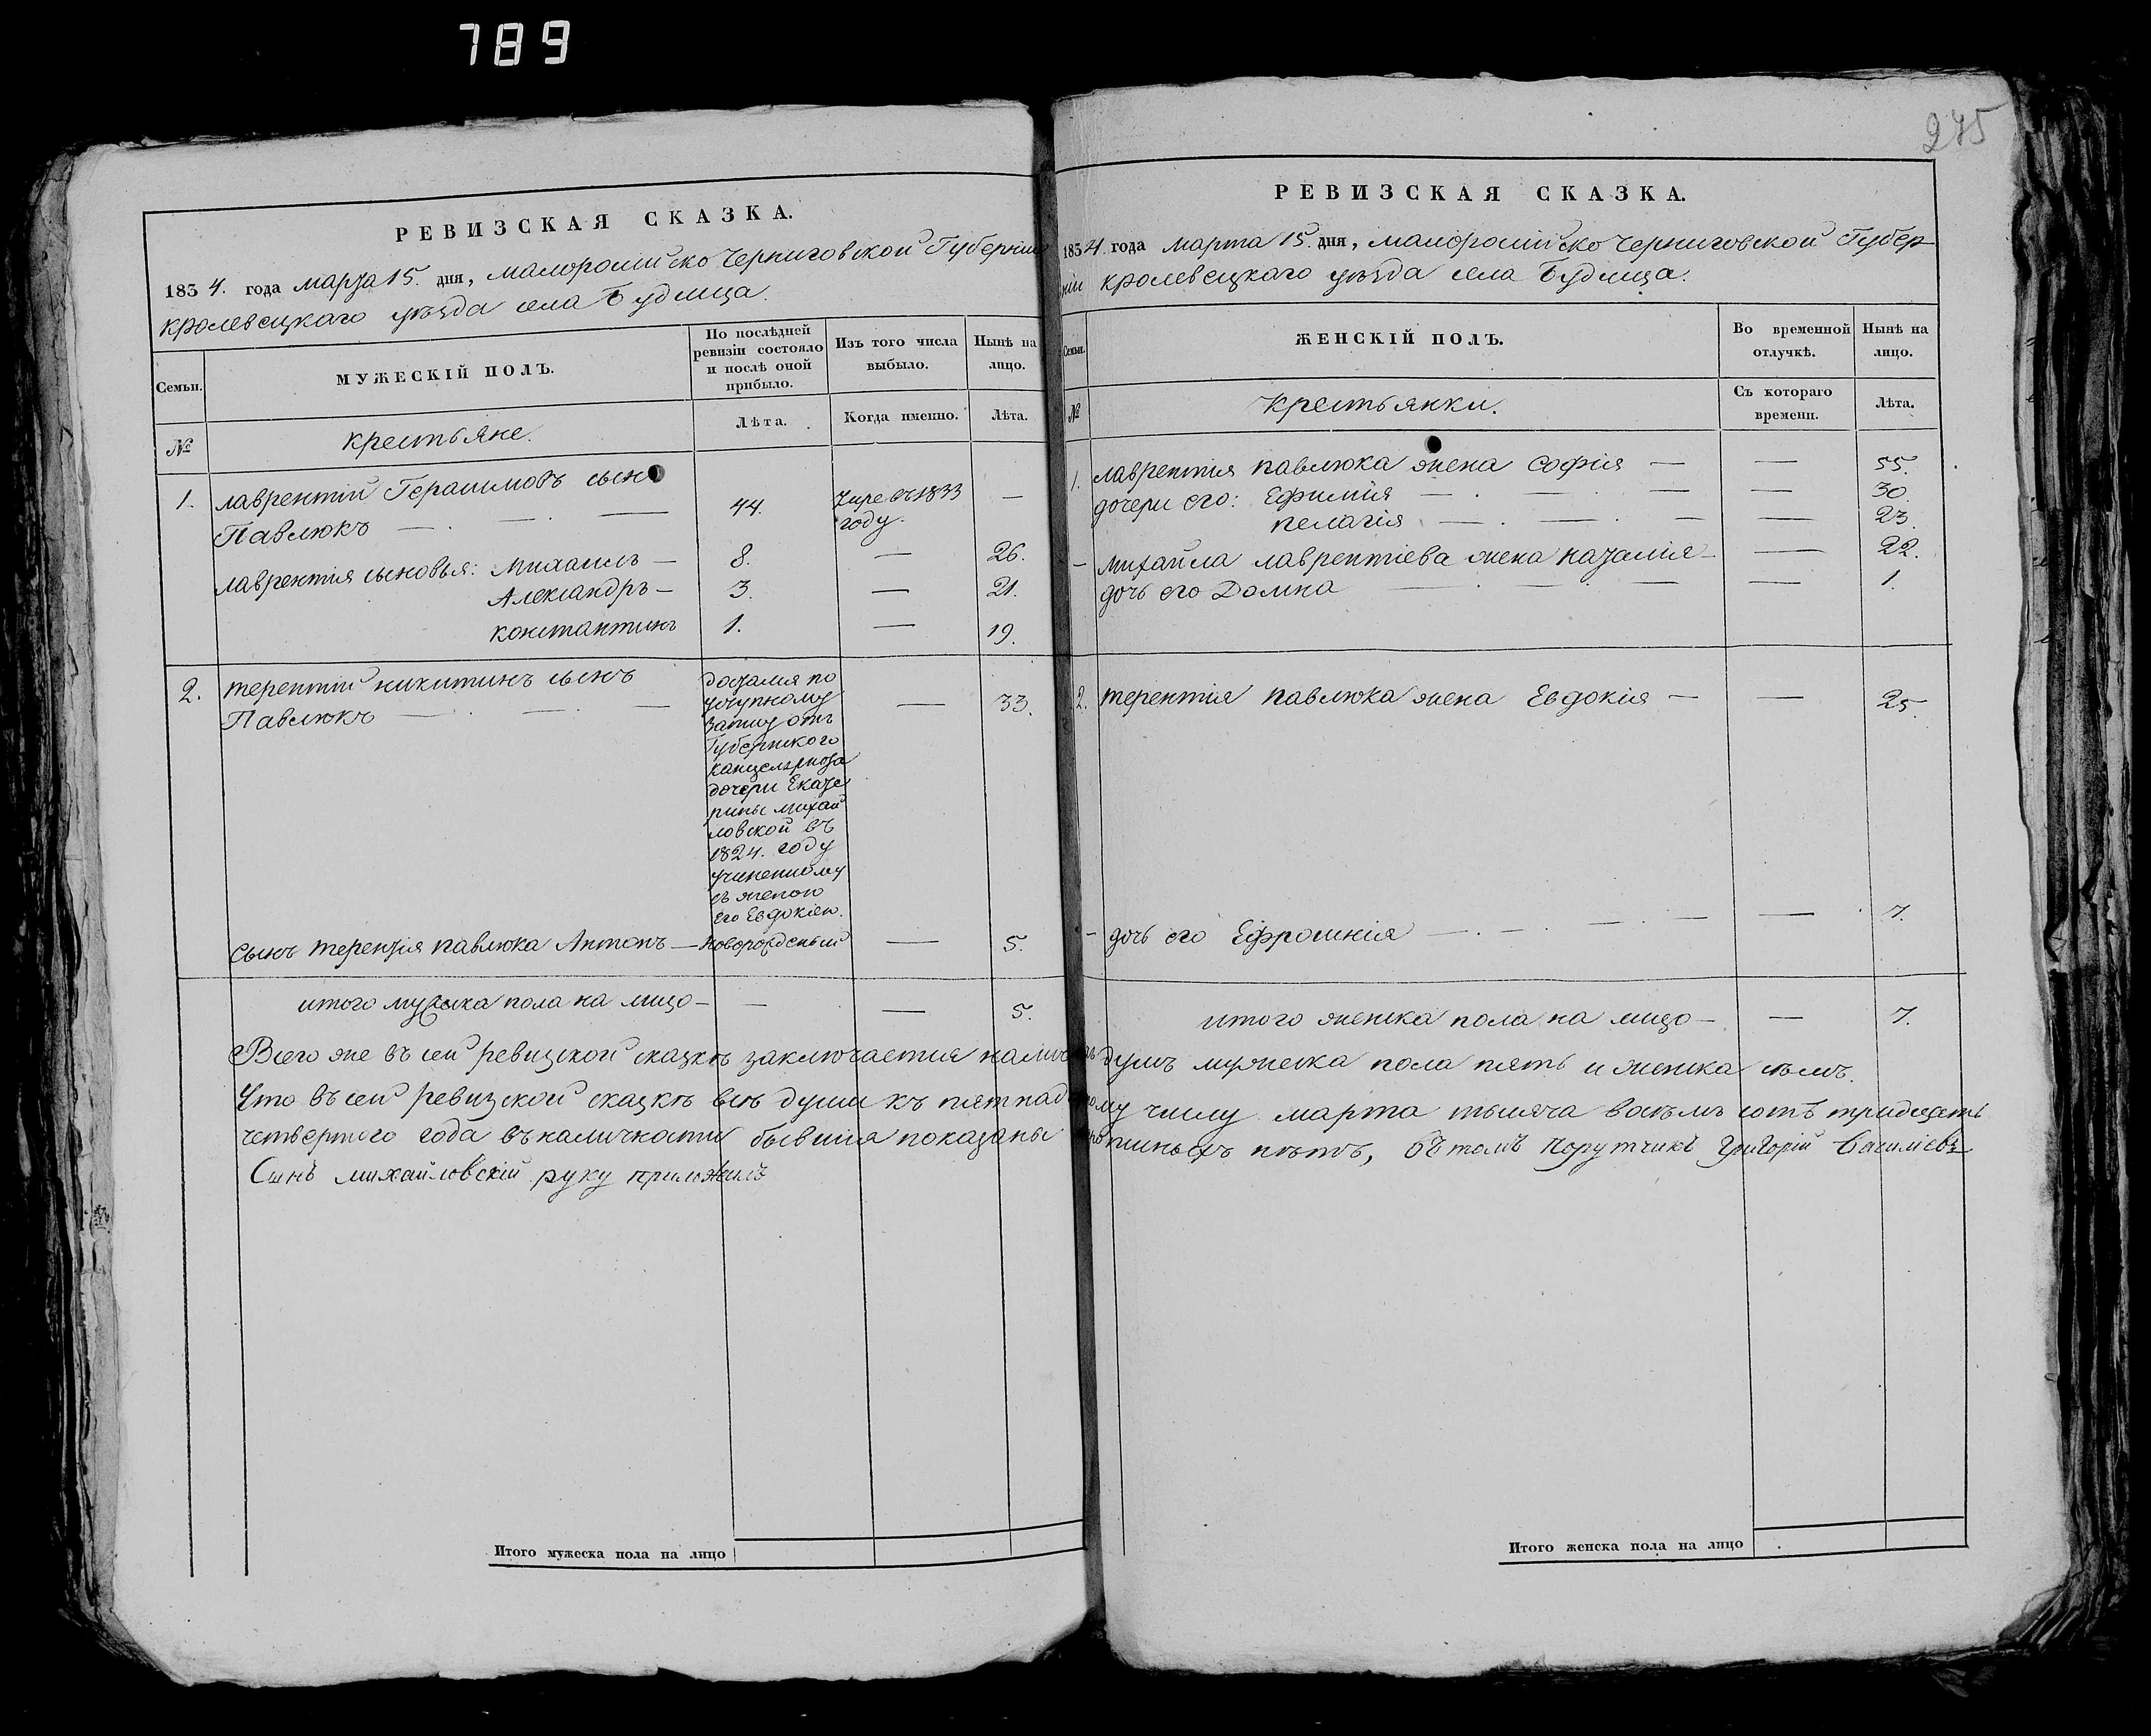 789
275
РЕВИЗСКАЯ СКАЗКА.
1834. года марта 15. дня, малороссійско Черниговской Губерніи
кролевецкаго уѣзда села Будлища.
Семьи.
МУЖЕСКІЙ ПОЛЪ.
По послѣдней ревизіи состояло и послѣ оной прибыло.
Изъ того числа выбыло.
Нынѣ на лицо.
№
крестьяне.
Лѣта.
Когда именно.
Лѣта.
1. лаврентій Герасимовъ сынъ
Павлюкъ — 44. Умре въ 1833 году. —
лаврентія сыновья: Михаилъ — 8. — 26.
Александръ — 3. — 21.
константинъ 1. — 19.
2. терентій никитинъ сынъ
Павлюкъ — — 33.
достался по
уступному
запису отъ
Губернского
канцеляриста
дочери Екате
рины михай
ловской въ
1824. году
учиненному
съ женою
его Евдокіею.
сынъ терентія павлюка Антонъ — новорожденный — 5.
итого мужеска пола на лицо — — — 5.
РЕВИЗСКАЯ СКАЗКА.
1834 года марта 15. дня, малороссійско Черниговской Губер
ніи кролевецкаго уѣзда села Будлища.
Семьи.
ЖЕНСКІЙ ПОЛЪ.
Во временной отлучкѣ.
Нынѣ на лицо.
№
Крестьянки.
Съ котораго времени.
Лѣта.
1. лаврентія павлюка жена Софія — — 55.
дочери его: Ефимія — — 30.
пелагія — — 23.
— михайла лаврентіева жена наталія — — 22.
дочь его Домна — — 1.
2. терентія павлюка жена Евдокія — — 25.
— дочь его Ефросинія — — 7.
итого женска пола на лицо — — 7.
Всего же въ сей ревизской сказкѣ заключается налич душъ мужеска пола пять и женска семь.
Что въ сей ревизской сказкѣ всѣ души къ пятнад му числу марта тысяча восемъ сотъ тридцеть
четвертого года въ наличности бывшія показаны и нѣтъ, въ томъ Порутчикъ Григорій Васильевъ
Сынъ михайловскій руку приложилъ
Итого мужеска пола на лицо
Итого женска пола на лицо